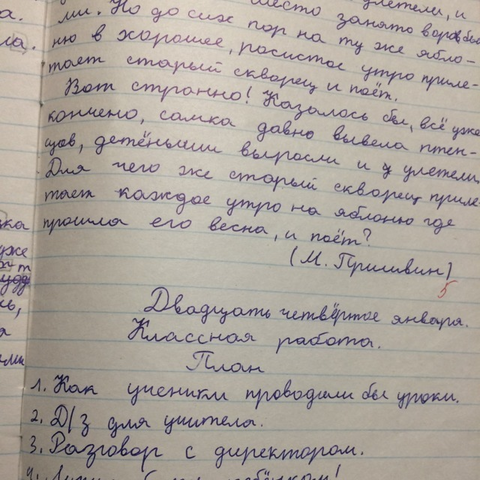 место занято воробья-
ми. Но до сих пор на ту же ябло-
ню в хорошее, росистое утро приле-
тает старый скворец и поёт.
Вот странно! Казалось бы, всё уже
кончено, самка давно вывела птен-
цов, детёныши выросли и улетели.
Для чего же старый скворец приле-
тает каждое утро на яблоню где
прошла его весна, и поёт?
(М. Пришвин)
5
Двадцать четвёртое января.
Классная работа.
План
1. Как ученики проводили бы уроки.
2. Д/з для учителя.
3. Разговор с директором.
4.